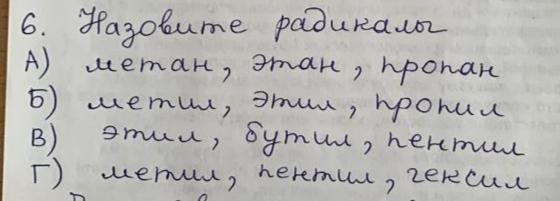 6. Назовите радикалы
А) метан, этан, пропан
Б) метил, этил, пропил
В) этил, бутил, пентил
Г) метил, пентил, гексил